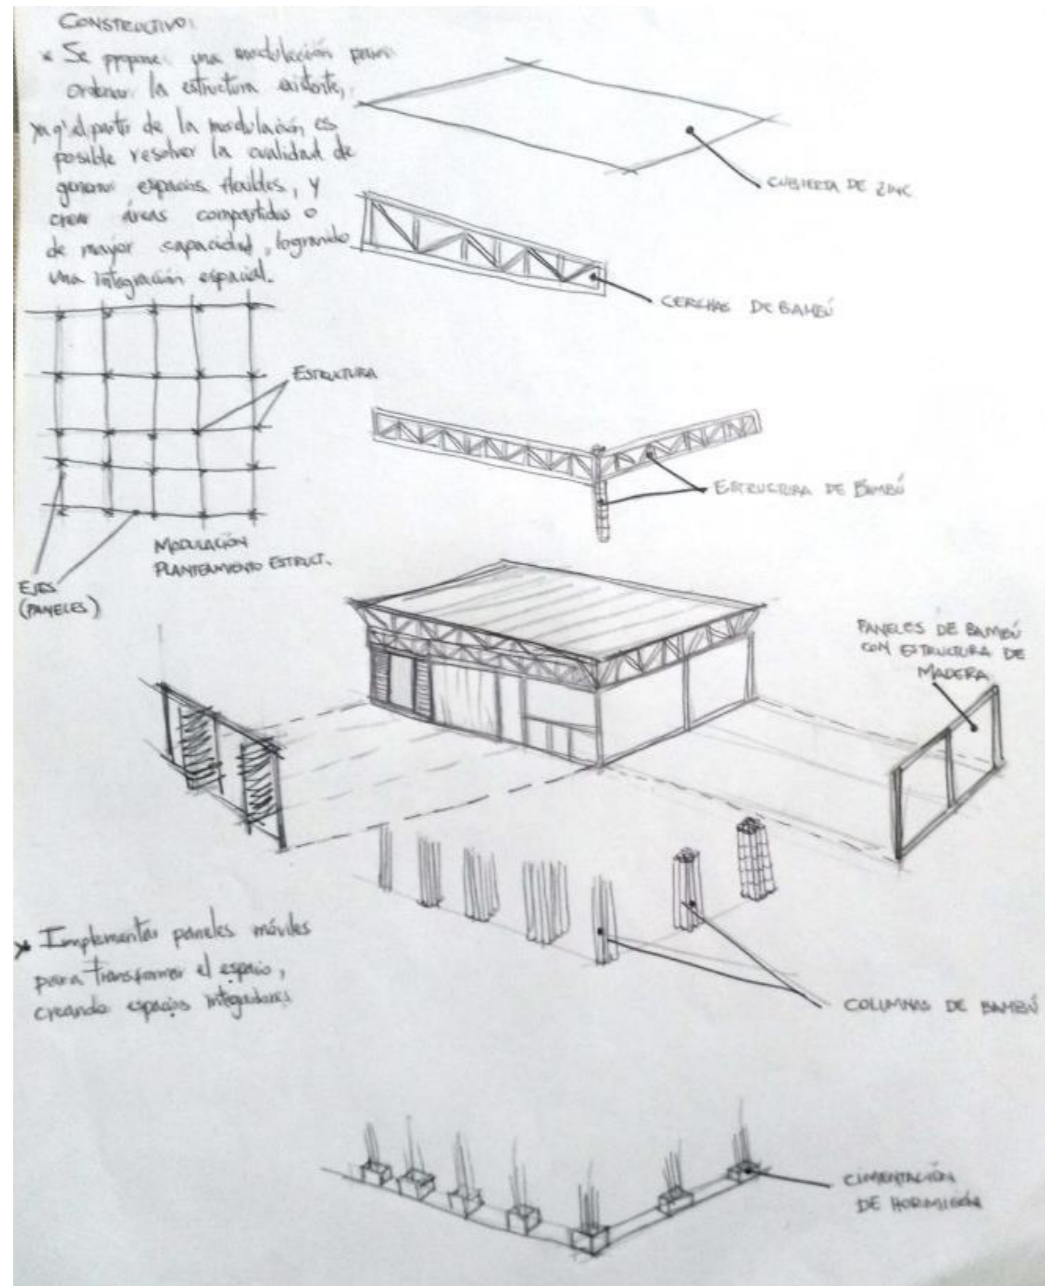 CONSTRUCTIVO:
* Se propone una modulación para
ordenar la estructura existente,
ya q' a partir de la modulación es
posible resolver la cualidad de
generar espacios flexibles, y
crear áreas compartidas o
de mayor capacidad, logrando
una integración espacial.
CUBIERTA DE ZINC
CERCHAS DE BAMBÚ
ESTRUCTURA
ESTRUCTURA DE BAMBÚ
MODULACIÓN
PLANTEAMIENTO ESTRUCT.
EJES
(PANELES)
PANELES DE BAMBÚ
CON ESTRUCTURA DE
MADERA
* Implementar paneles móviles
para transformar el espacio,
creando espacios integradores
COLUMNAS DE BAMBÚ
CIMENTACIÓN
DE HORMIGÓN